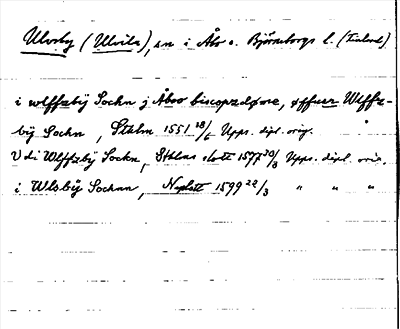 Ulvsby (Ulvila), sn i Åbo o. Björneborgs l. (Finland)
i wlffzbij Sochn j Åboo biscopzdöme, offuer Wlffz-
bij Sochn, Sthlm 1551 18/6 Upps. dipl. orig.
Vdi Wlffzbÿ Sockn, Sthlms slott 1577 30/8 Upps. dipl. orig.
i Wlsbÿ Sochnn, 1599 22/3 " " "